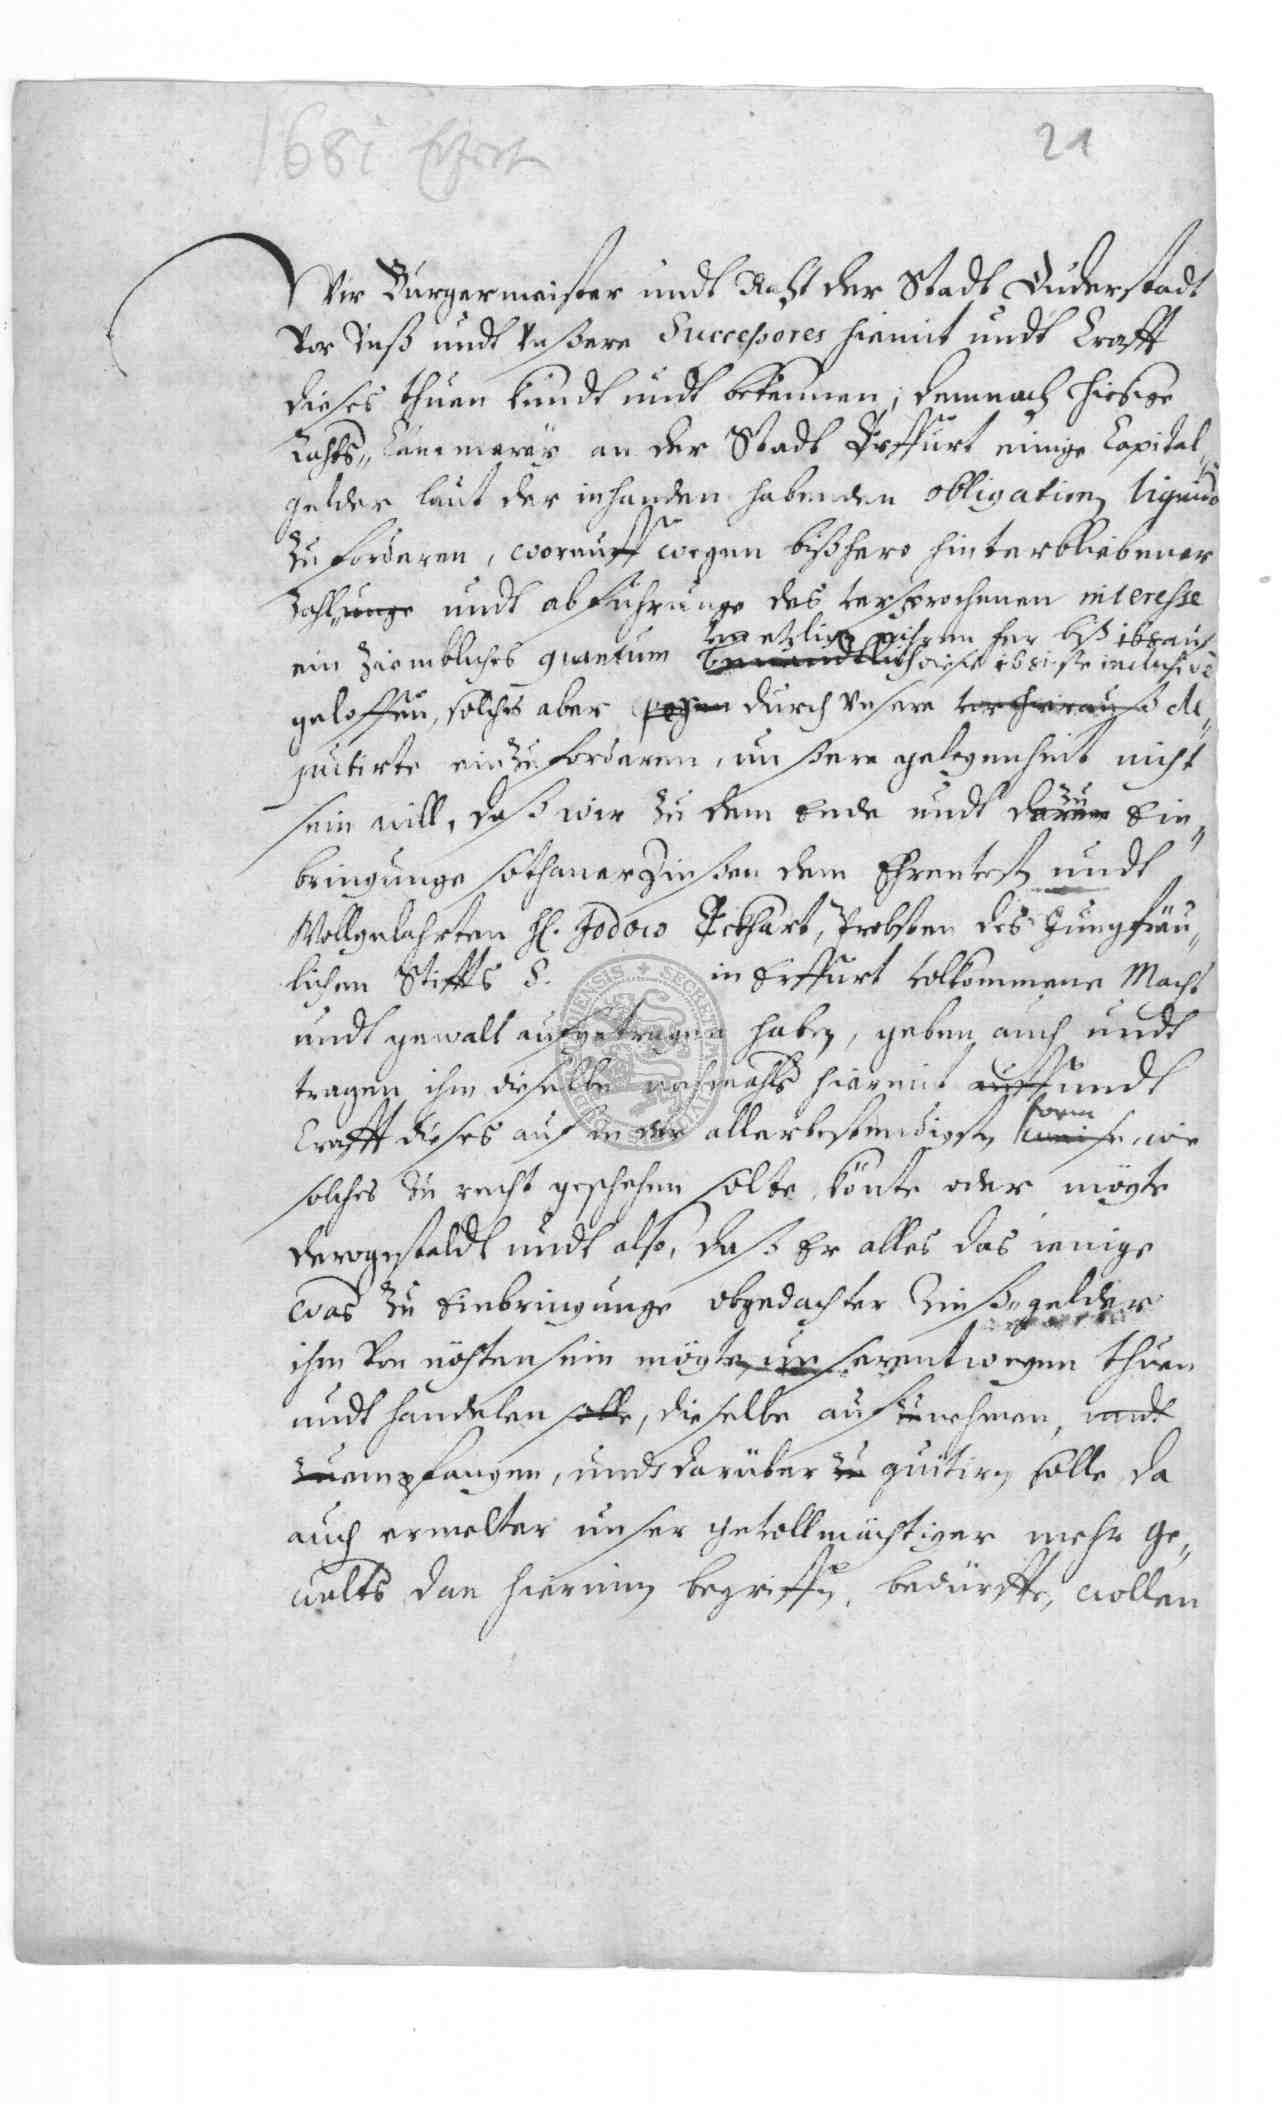 1681 Erfort
21
Wir Burgermeister undt Raht der Stadt Duderstadt
vor Unß undt unßere Successores hiemit undt Crafft
dieses thuen kundt undt bekennen, demnach hiesige
Rahts„ Cämmerey an der Stadt Erffurt einige Capital„
gelder laut der inhanden habenden obligation liquido
zu forderen, worauff wegen bißhero hinterbliebener
Zahlunge undt abführunge des versprochenen interesse
von etzlichen jahren her biß
ein ziembliches quantum inclusive
geloffen, solches aber durch unsere de„
putirte einzuforderen, unßere gelegenheit nicht
zu
sein will, daß wir zu dem Ende undt Ein„
bringunge sothaner Zinßen dem Ehrentvest undt
Wollgelahrten H. Jodoco Eckhart, Probsten des Jungfräu„
lichen Stiffts S. in Erffurt volkommene Macht
undt gewalt aufgetragen haben, geben auch undt
tragen ihm dieselbe nochmahls hiermit auff undt
form
Crafft dieses auf in der allerbestendigsten weise, wie
solches zu recht geschehen solte, könte oder mögte
derogestaldt undt also, daß Er alles das ienige
was zu Einbringunge obgedachter Zinße„gelder
ihm von nöhten sein mögte, unserentwegen thuen
undt handelen solle, dieselbe aufzunehmen, undt
zu empfangen, undt darüber zu quitiren solle, da
auch ermelter unser gevollmächtiger mehr ge„
walts dan hierinnen begriffen, bedürffte, wollen